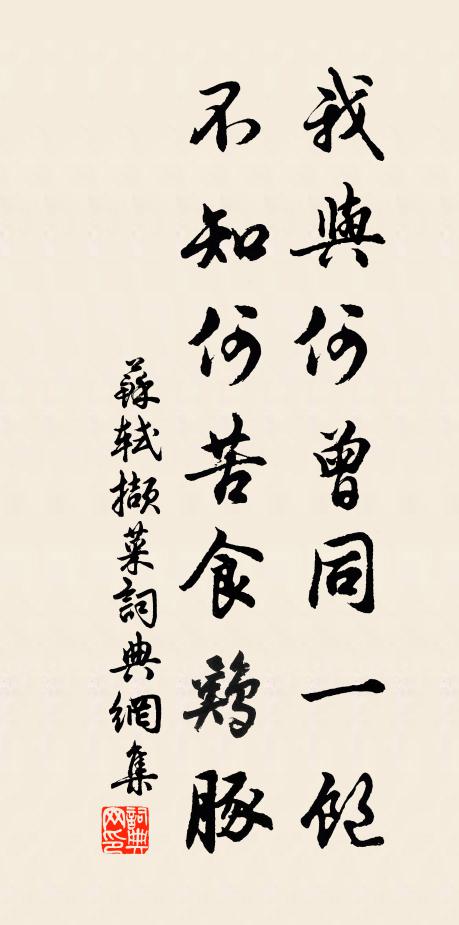 我與何曾同一飽
不知何苦食鷄豚
蘇軾擷菜詞典網集
詞典網印